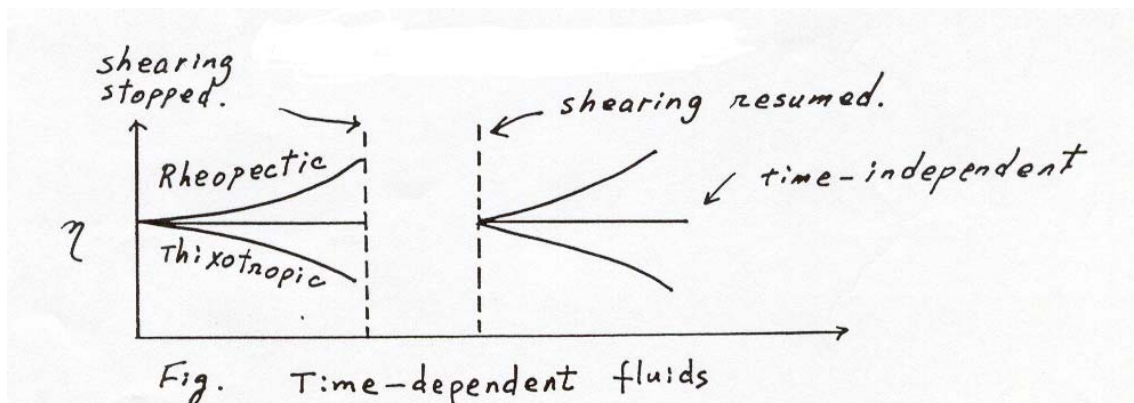 shearing
stopped.
shearing resumed.
Rheopectic
time-independent
η
Thixotropic
Fig. Time-dependent fluids